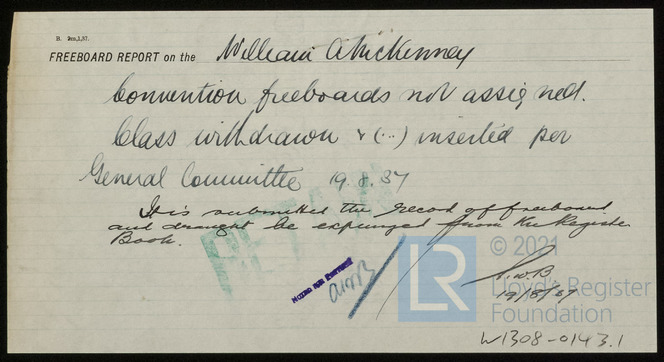 B. 9m,1,37.
FREEBOARD REPORT on the William A McKenney
Convention freeboards not assigned.
Class withdrawn & (...) inserted per
General Committee 19.8.37
It is submitted the record of freeboard
and draught be expunged from the Register
Book.
NOTED FOR POSTING
© 2021
LR
Lloyd's Register
Foundation
19/8/37
W1308-0143.1